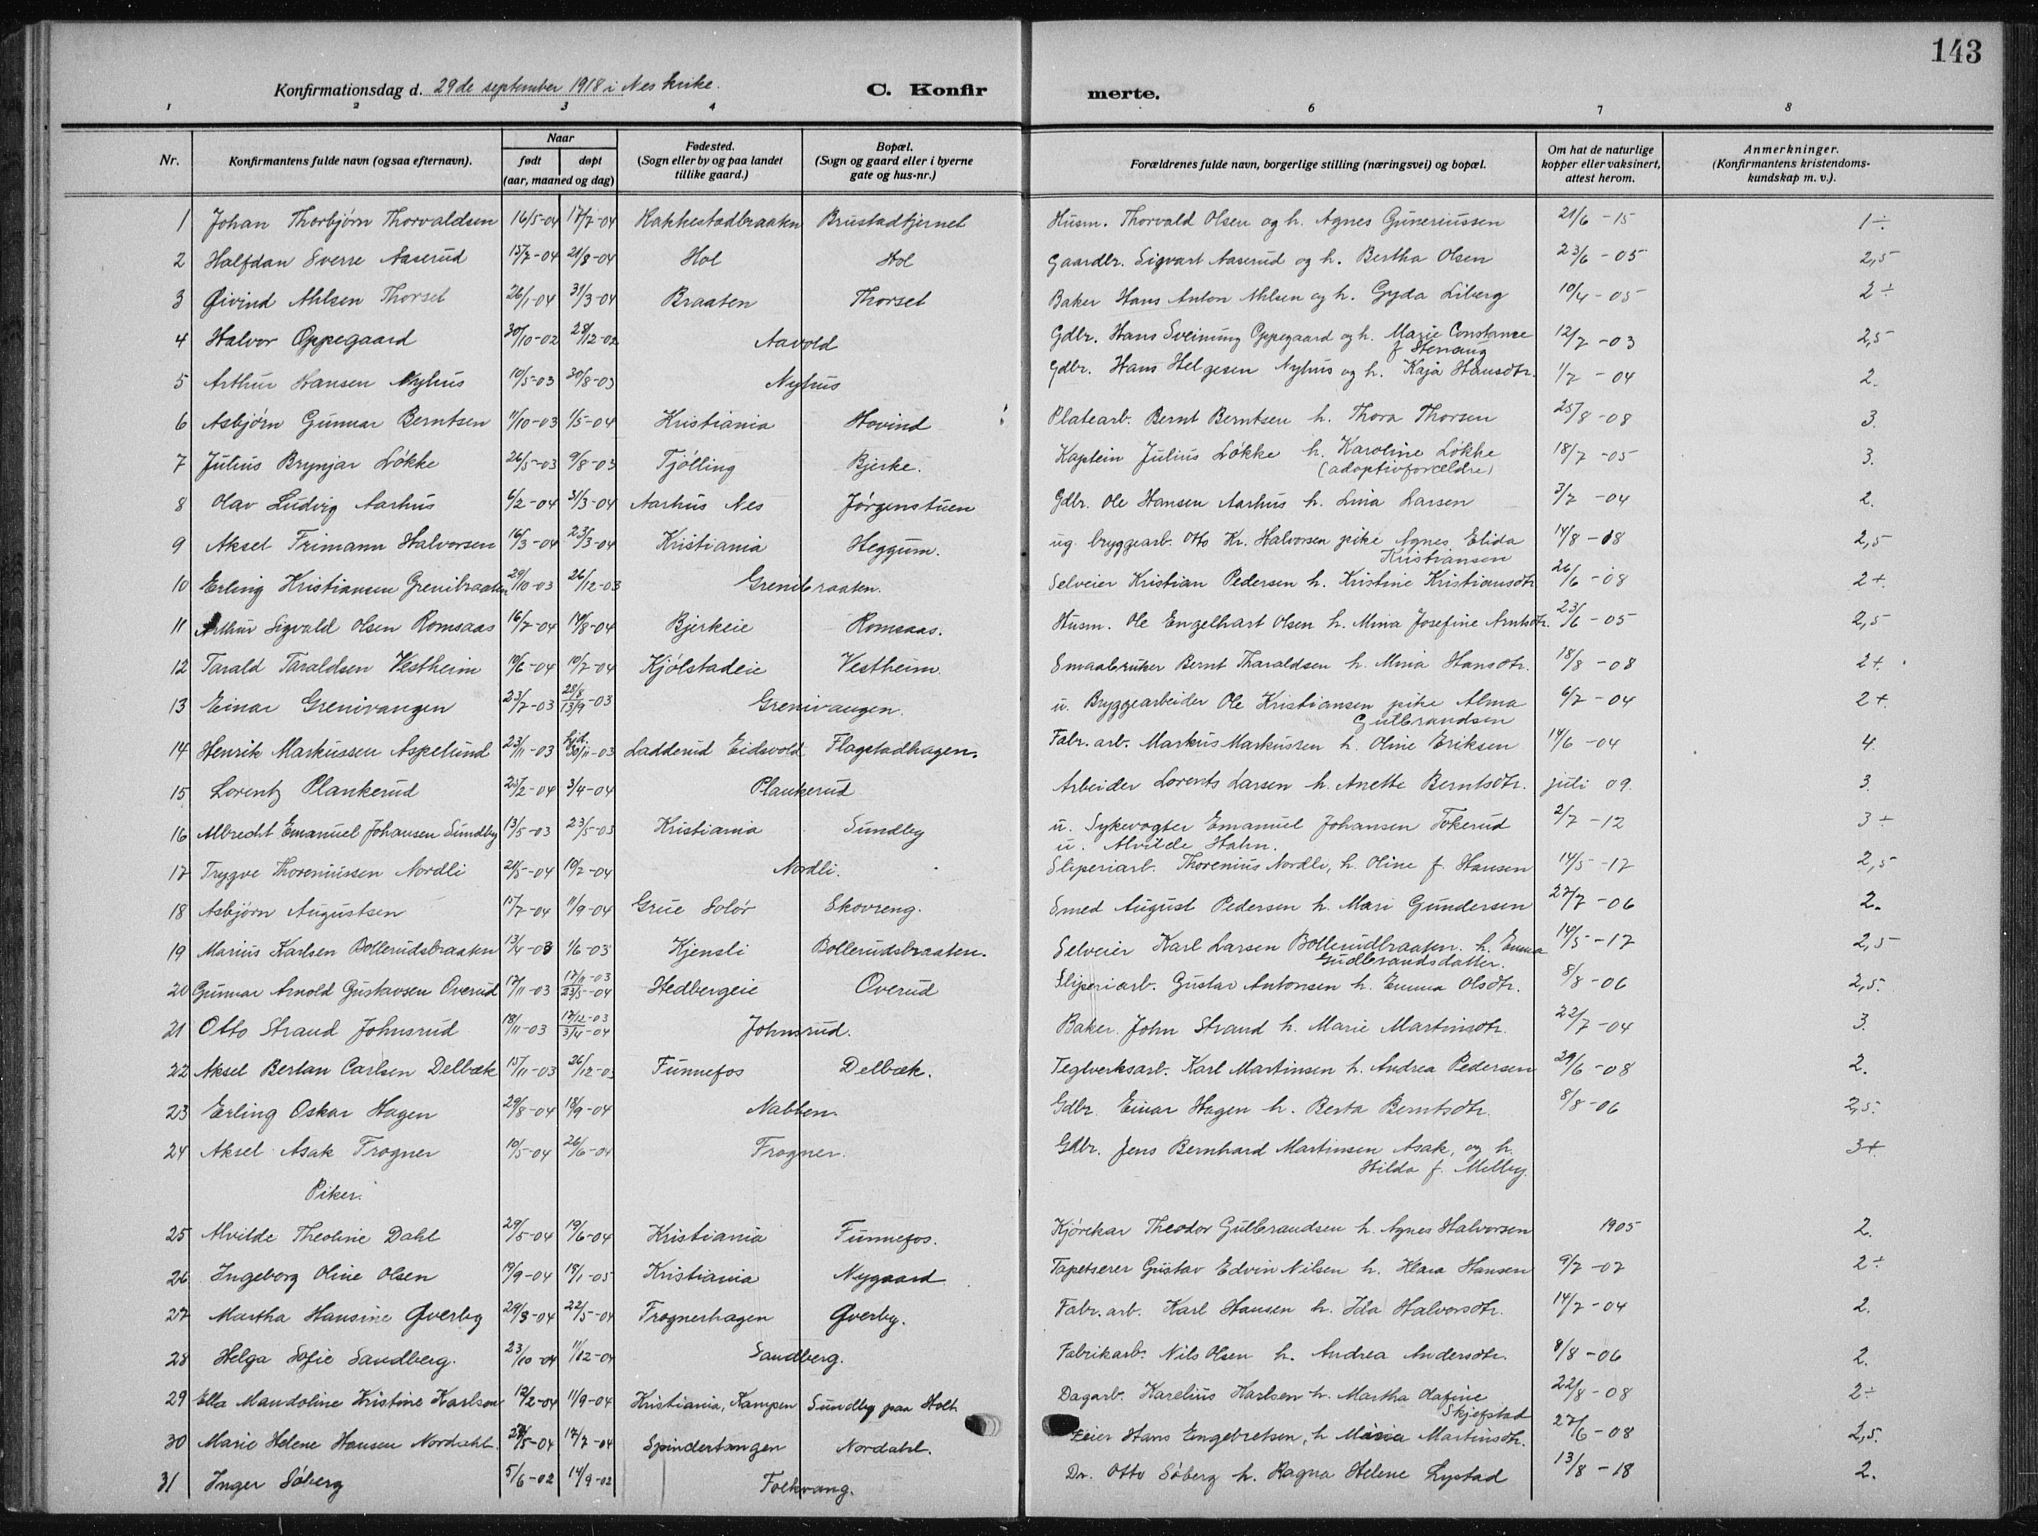 143
Konfirmationsdag d. 29de september 1918 i Nes kirke. C. Konfir merte.
1 2 3 4 6 7 8
Nr. Konfirmantens fulde navn (ogsaa efternavn). Naar født døpt (aar, maaned og dag) Fødested. (Sogn eller by og paa landet tillike gaard.) Bopæl. (Sogn og gaard eller i byerne gate og hus-nr.) Forældrenes fulde navn, borgerlige stilling (næringsvei) og bopæl. Om hat de naturlige kopper eller vaksinert, attest herom. Anmerkninger. (Konfirmantens kristendoms-kundskap m. v.).
1 Johan Thorbjørn Thorvaldsen 16/5-04 17/7-04 Kakkestadbraaten Brustadtjernet Husm. Thorvald Olsen og h. Agnes Guneriussen 21/6 -15 1÷.
2 Halfdan Sverre Aaserud 15/7-04 21/8-04 Hol Hol Gaardbr. Sigvart Aaserud og h. Bertha Olsen 23/6 -05 2,5
3 Øivind Ahlsen Thorset 26/1-04 31/3-04 Braaten Thorset Baker Hans Anton Ahlsen og h. Gyda Liberg 10/4 -05 2÷
4 Halvor Oppegaard 30/10-02 28/12-02 Aavold Gdbr. Hans Sveinung Oppegaard og h. Marie Constance f Stenaug 12/7 -03 2,5
5 Arthur Hansen Nyhus 10/5-03 30/8-03 Nyhus Gdbr. Hans Helgesen Nyhus og h. Kaja Hansdtr. 1/7 -04 2.
6 Asbjørn Gunnar Berntsen 11/10-03 1/5-04 Kristiania Hovind Platearb. Bernt Berntsen h. Thora Thorsen 25/8 -08 3.
7 Julius Brynjar Løkke 26/5-03 9/8-03 Tjølling Bjerke. Kaptein Julius Løkke h. Karoline Løkke (adoptivforældre) 18/7 -05 3.
8 Olav Ludvig Aarhus 6/2-04 31/3-04 Aarhus Nes Jørgenstuen Gdbr. Ole Hansen Aarhus h. Lina Larsen 3/7 -04 2.
9 Aksel Frimann Halvorsen 16/3-04 23/3-04 Kristiania Heggum. ug. bryggearb. Otto Kr. Halvorsen pike Agnes Elida Kristiansen 14/8 -08 2,5
10 Erling Kristiansen Grenibraaten 29/10-03 26/12-03 Grenibraaten. Selveier Kristian Pedersen h. Kristine Kristiansdtr 26/6 -08 2+
11 Arthur Sigvald Olsen Romsaas 16/7-04 14/8-04 Bjerkeie Romsaas. Husm. Ole Engelhart Olsen h. Mina Josefine Arntsdtr. 23/6 -05 2,5
12 Tarald Taraldsen Vestheim 10/6-04 10/7-04 Kjølstadeie Vestheim. Smaabruker Bernt Tharaldsen h. Mina Hansdtr. 18/8 -08 2+.
13 Einar Grenivangen 23/7-03 28/8 13/9-03 Grenivangen. u. Bryggearbeider Ole Kristiansen pike Alma Gulbrandsen 6/7 -04 2+.
14 Henrik Markussen Aspelund 23/11-03 hjd. 30/11-03 Ladderud Eidsvold Flagstadhagen. Fabr. arb. Markus Markussen h. Oline Eriksen 14/6 -04 4.
15 Lorentz Plankerud 25/2-04 3/4-04 Plankerud Arbeider Lorents Larsen h. Anette Berntsdtr. juli 09. 3.
16 Albrecht Emanuel Johansen Sundby 13/5-03 23/5-03 Kristiania Sundby u. Sykevogter Emanuel Johansen Tokerud u. Alvilde Hahn. 2/7 -12 3÷
17 Trygve Thoreniussen Nordli 21/5-04 10/7-04 Nordli. Sliperiarb. Thorenius Nordli, h. Oline f. Hansen 14/5 -17 2,5
18 Asbjørn Augustsen 15/7-04 11/9-04 Grue Solør Skovreng. Smed August Pedersen h. Mari Gundersen 27/7 -06 2.
19 Marius Karlsen Bollerudsbraaten 13/4-03 1/6-03 Kjensli Bollerudsbraaten. Selveier Karl Larsen Bollerudbraaten. h. Emma Gudbrandsdatter. 14/5 -17 2,5
20 Gunnar Arnold Gustavsen Overud 17/11-03 17/11-03 23/5-04 Hedbergeie Overud Sliperiarb. Gustav Antonsen h. Emma Olsdtr. 8/8 -06 2,5.
21 Otto Strand Johnsrud 18/11-03 17/12-03 3/4-04 Johnsrud. Baker. John Strand h. Marie Martinsdtr. 22/7 -04 3.
22 Aksel Bertan Carlsen Delbæk 15/11-03 26/12-03 Funnefos Delbæk. Teglverksarb. Karl Martinsen h. Andrea Pedersen 29/6 -08 2.
23 Erling Oskar Hagen 29/8-04 18/9-04 Nabben. Gdbr. Einar Hagen h. Berta Berntsdtr. 8/8 -06 2,5.
24 Aksel Asak Frogner 10/5-04 26/6-04 Frogner. Gdbr. Jens Bernhard Martinsen Asak, og h. Hilda f. Melby. 3+.
Piker.
25 Alvilde Theoline Dahl 29/5-04 19/6-04 Kristiania Funnefos. Kjørekar Theodor Gulbrandsen h. Agnes Halvorsen 1905 2.
26 Ingeborg Oline Olsen 19/9-04 18/1-05 Kristiania Nygaard. Tapetserer Gustav Edvin Nilsen h. Klara Hansen 9/7 -07 2÷
27 Martha Hansine Qverby 29/3-04 22/5-04 Frognerhagen Qverby. Fabr. arb. Karl Hansen h. Ida Halvorsdtr. 14/7 -04 2.
28 Helga Sofie Sandberg. 23/10-04 11/12-04 Sandberg. Fabrikarb. Nils Olsen h. Andrea Andersdtr. 8/8 -06 2.
29 Ella Mandoline Kristine Karlsen 12/2-04 11/9-04 Kristiania, Kampen Sundby paa Holt. Dagarb. Karelius Karlsen h. Martha Olafine Skjefstad 22/8 -08 2÷
30 Marie Helene Hansen Nordahl. 29/5-04 17/7-04 Spindertangen Nordahl. Eier Hans Engebretsen, h Maria Martinsdtr. 27/6 -08 2,5.
31 Inger Søberg 5/6-02 14/9-02 Folkvang. Dr. Otto Søberg h. Ragna Helene Lystad 13/8 -18 2.